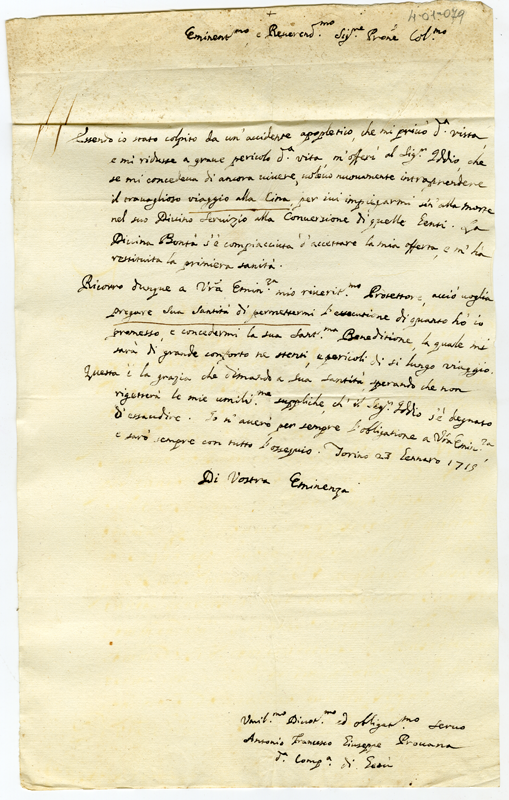 4-01-079
Eminent.mo, e Reverend.mo Sig.re Prone Col.mo
Essendo io stato colpito da un'accidente apopletico, che mi privò d.a vista
e mi ridusse a grave pericolo d.a vita, m'offerì al Sig.r Iddio, che
se mi concedeva di ancora vivere, volevo nuovamente intraprendere
il travaglioso viaggio alla Cina, per ivi impiegarmi sin'alla morte
nel suo Divino Servizio alla Conversione di quelle Genti. La
Divina Bontà s'è compiacciuta d'accettare la mia offerta, e m'ha
restituita la primiera sanità.
Ricorro dunque a Vrã Emin.za mio riverit.mo Protettore, acciò voglia
pregare Sua Santità di permettermi l'essecutione di quanto hò io
promesso, e concedermi la sua Sant.ma Beneditione, la quale mi
sarà di grande conforto ne stenti, e pericoli di sì lungo viaggio.
Questa è la grazia che dimando a sua santità sperando che non
rigetterà le mie umilis.me suppliche, ch'il Sig.r Iddio s'è degnato
d'essaudire. Io n'averò per sempre l'obligatione a Vrã Emin.za
e sarò sempre con tutto l'ossequio. Torino 23 Gennaro 1719
Di Vostra Eminenza
Umil.mo Divot.mo ed obligat.mo servo
Antonio Francesco Giuseppe Provana
d.a Comp.a di Gesù